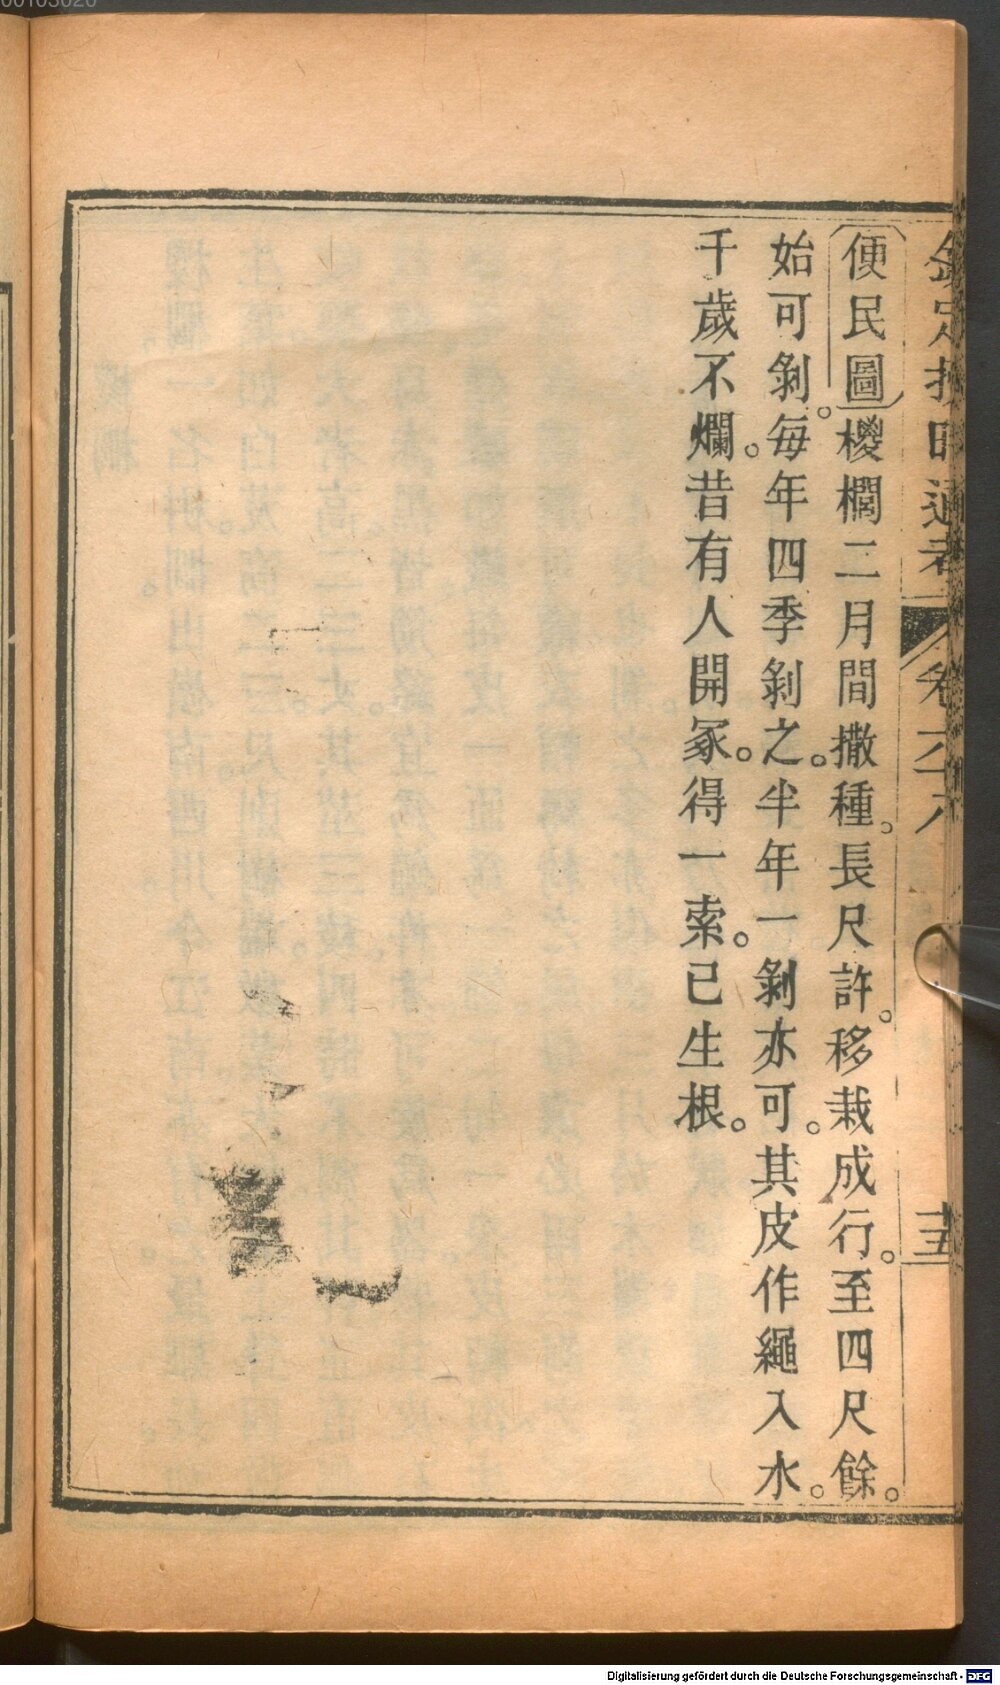 欽定授時通考
卷六十八
十五
便民圖椶櫚二月間撒種。長尺許。移栽成行。至四尺餘。
始可剝。每年四季剝之。半年一剝亦可。其皮作繩入水。
千歲不爛。昔有人開冢。得一索。已生根。
Digitalisierung gefördert durch die Deutsche Forschungsgemeinschaft - DFG